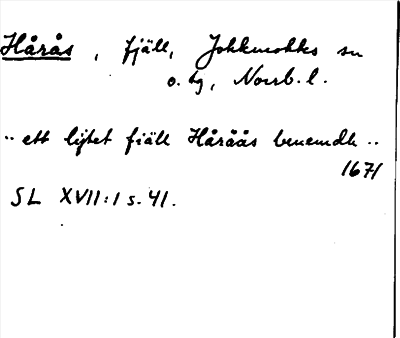 Hårås, fjäll, Jokkmokks sn
o. tg, Norrb. l.
.. ett lijtet fiäll Håråås benemdh ..
1671
SL XVII:1 s. 41.